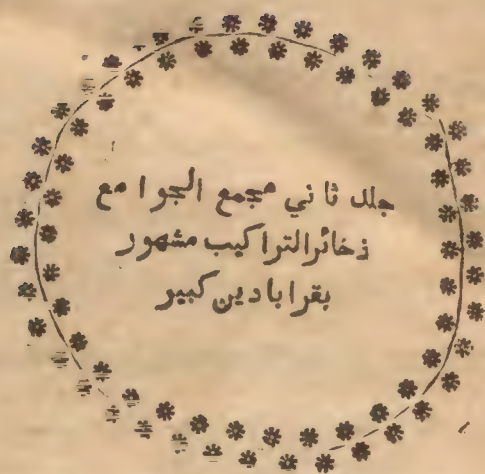 جلد ثاني مجمع الجوامع
ذخائر التراكيب مشهور
بقرابادين كبير